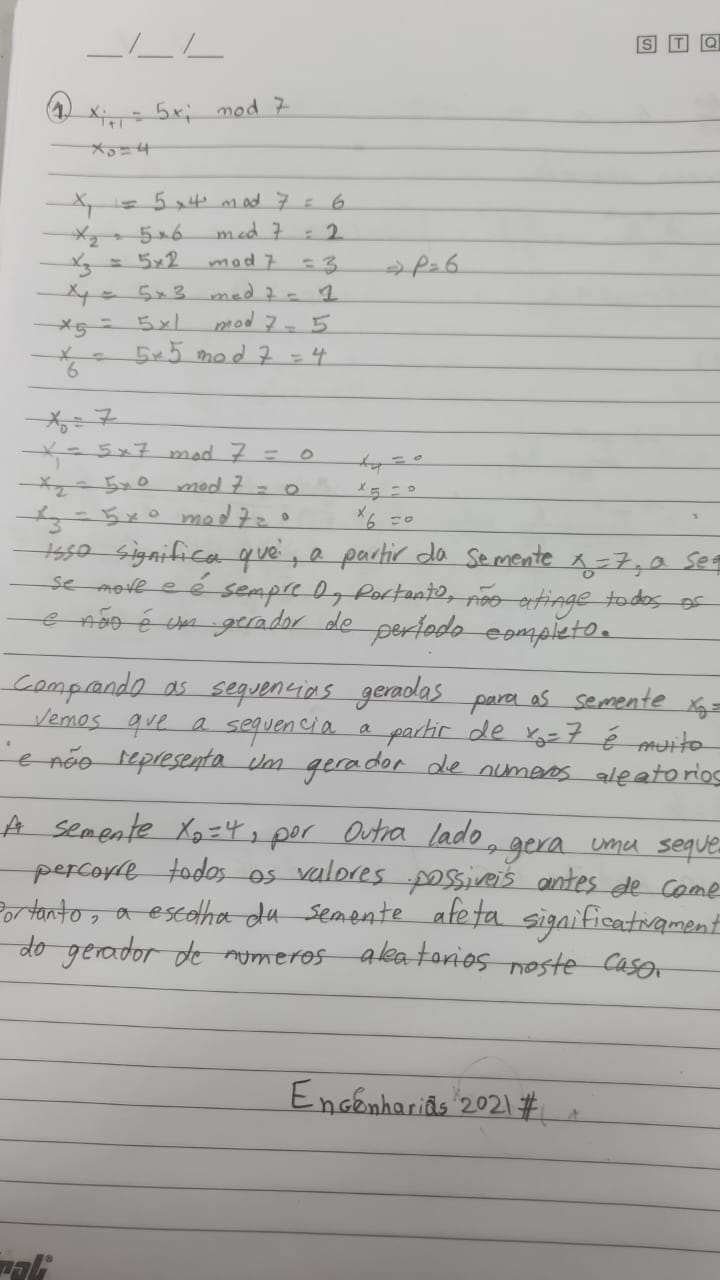 __/__/__
S T Q
1. x_{i+1} = 5x_i mod 7
x_0 = 4
x_1 = 5×4 mod 7 = 6
x_2 = 5×6 mod 7 = 2
x_3 = 5×2 mod 7 = 3 ⇒ P=6
x_4 = 5×3 mod 7 = 1
x_5 = 5×1 mod 7 = 5
x_6 = 5×5 mod 7 = 4
x_0 = 7
x_1 = 5×7 mod 7 = 0 x_4 = 0
x_2 = 5×0 mod 7 = 0 x_5 = 0
x_3 = 5×0 mod 7 = 0 x_6 = 0
Isso significa que, a partir da semente x_0=7, a se
se move e é sempre 0, Portanto, não atinge todos os
e não é um gerador de período completo.
Comprando as sequencias geradas para as semente x_0=
vemos que a sequencia a partir de x_0=7 é muito
e não representa um gerador de numeros aleatorios
A semente x_0=4, por outra lado, gera uma seque
percorre todos os valores possiveis antes de come
Portanto, a escolha da semente afeta significativament
do gerador de numeros aleatorios neste caso.
Engenharias 2021#